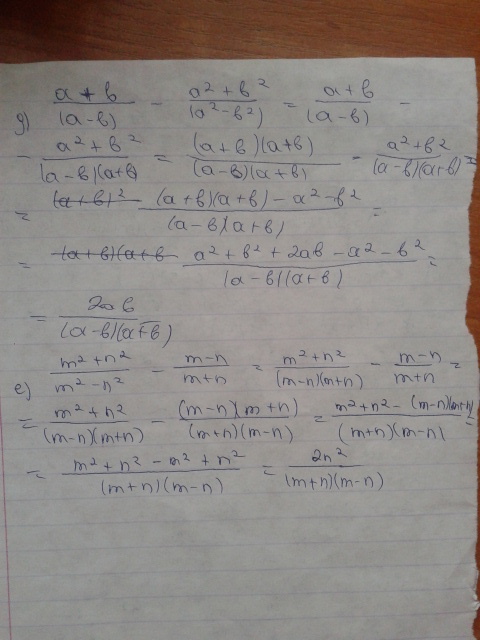 д) (a + b)/(a - b) - (a² + b²)/(a² - b²) = (a + b)/(a - b) -
- (a² + b²)/((a - b)(a + b)) = ((a + b)(a + b))/((a - b)(a + b)) - (a² + b²)/((a - b)(a + b)) =
= ((a + b)(a + b) - a² - b²)/((a - b)(a + b)) =
= (a² + b² + 2ab - a² - b²)/((a - b)(a + b)) =
= 2ab/((a - b)(a + b))
е) (m² + n²)/(m² - n²) - (m - n)/(m + n) = (m² + n²)/((m - n)(m + n)) - (m - n)/(m + n) =
= (m² + n²)/((m - n)(m + n)) - ((m - n)(m + n))/((m + n)(m - n)) = (m² + n² - (m - n)(m + n))/((m + n)(m - n)) =
= (m² + n² - m² + n²)/((m + n)(m - n)) = 2n²/((m + n)(m - n))